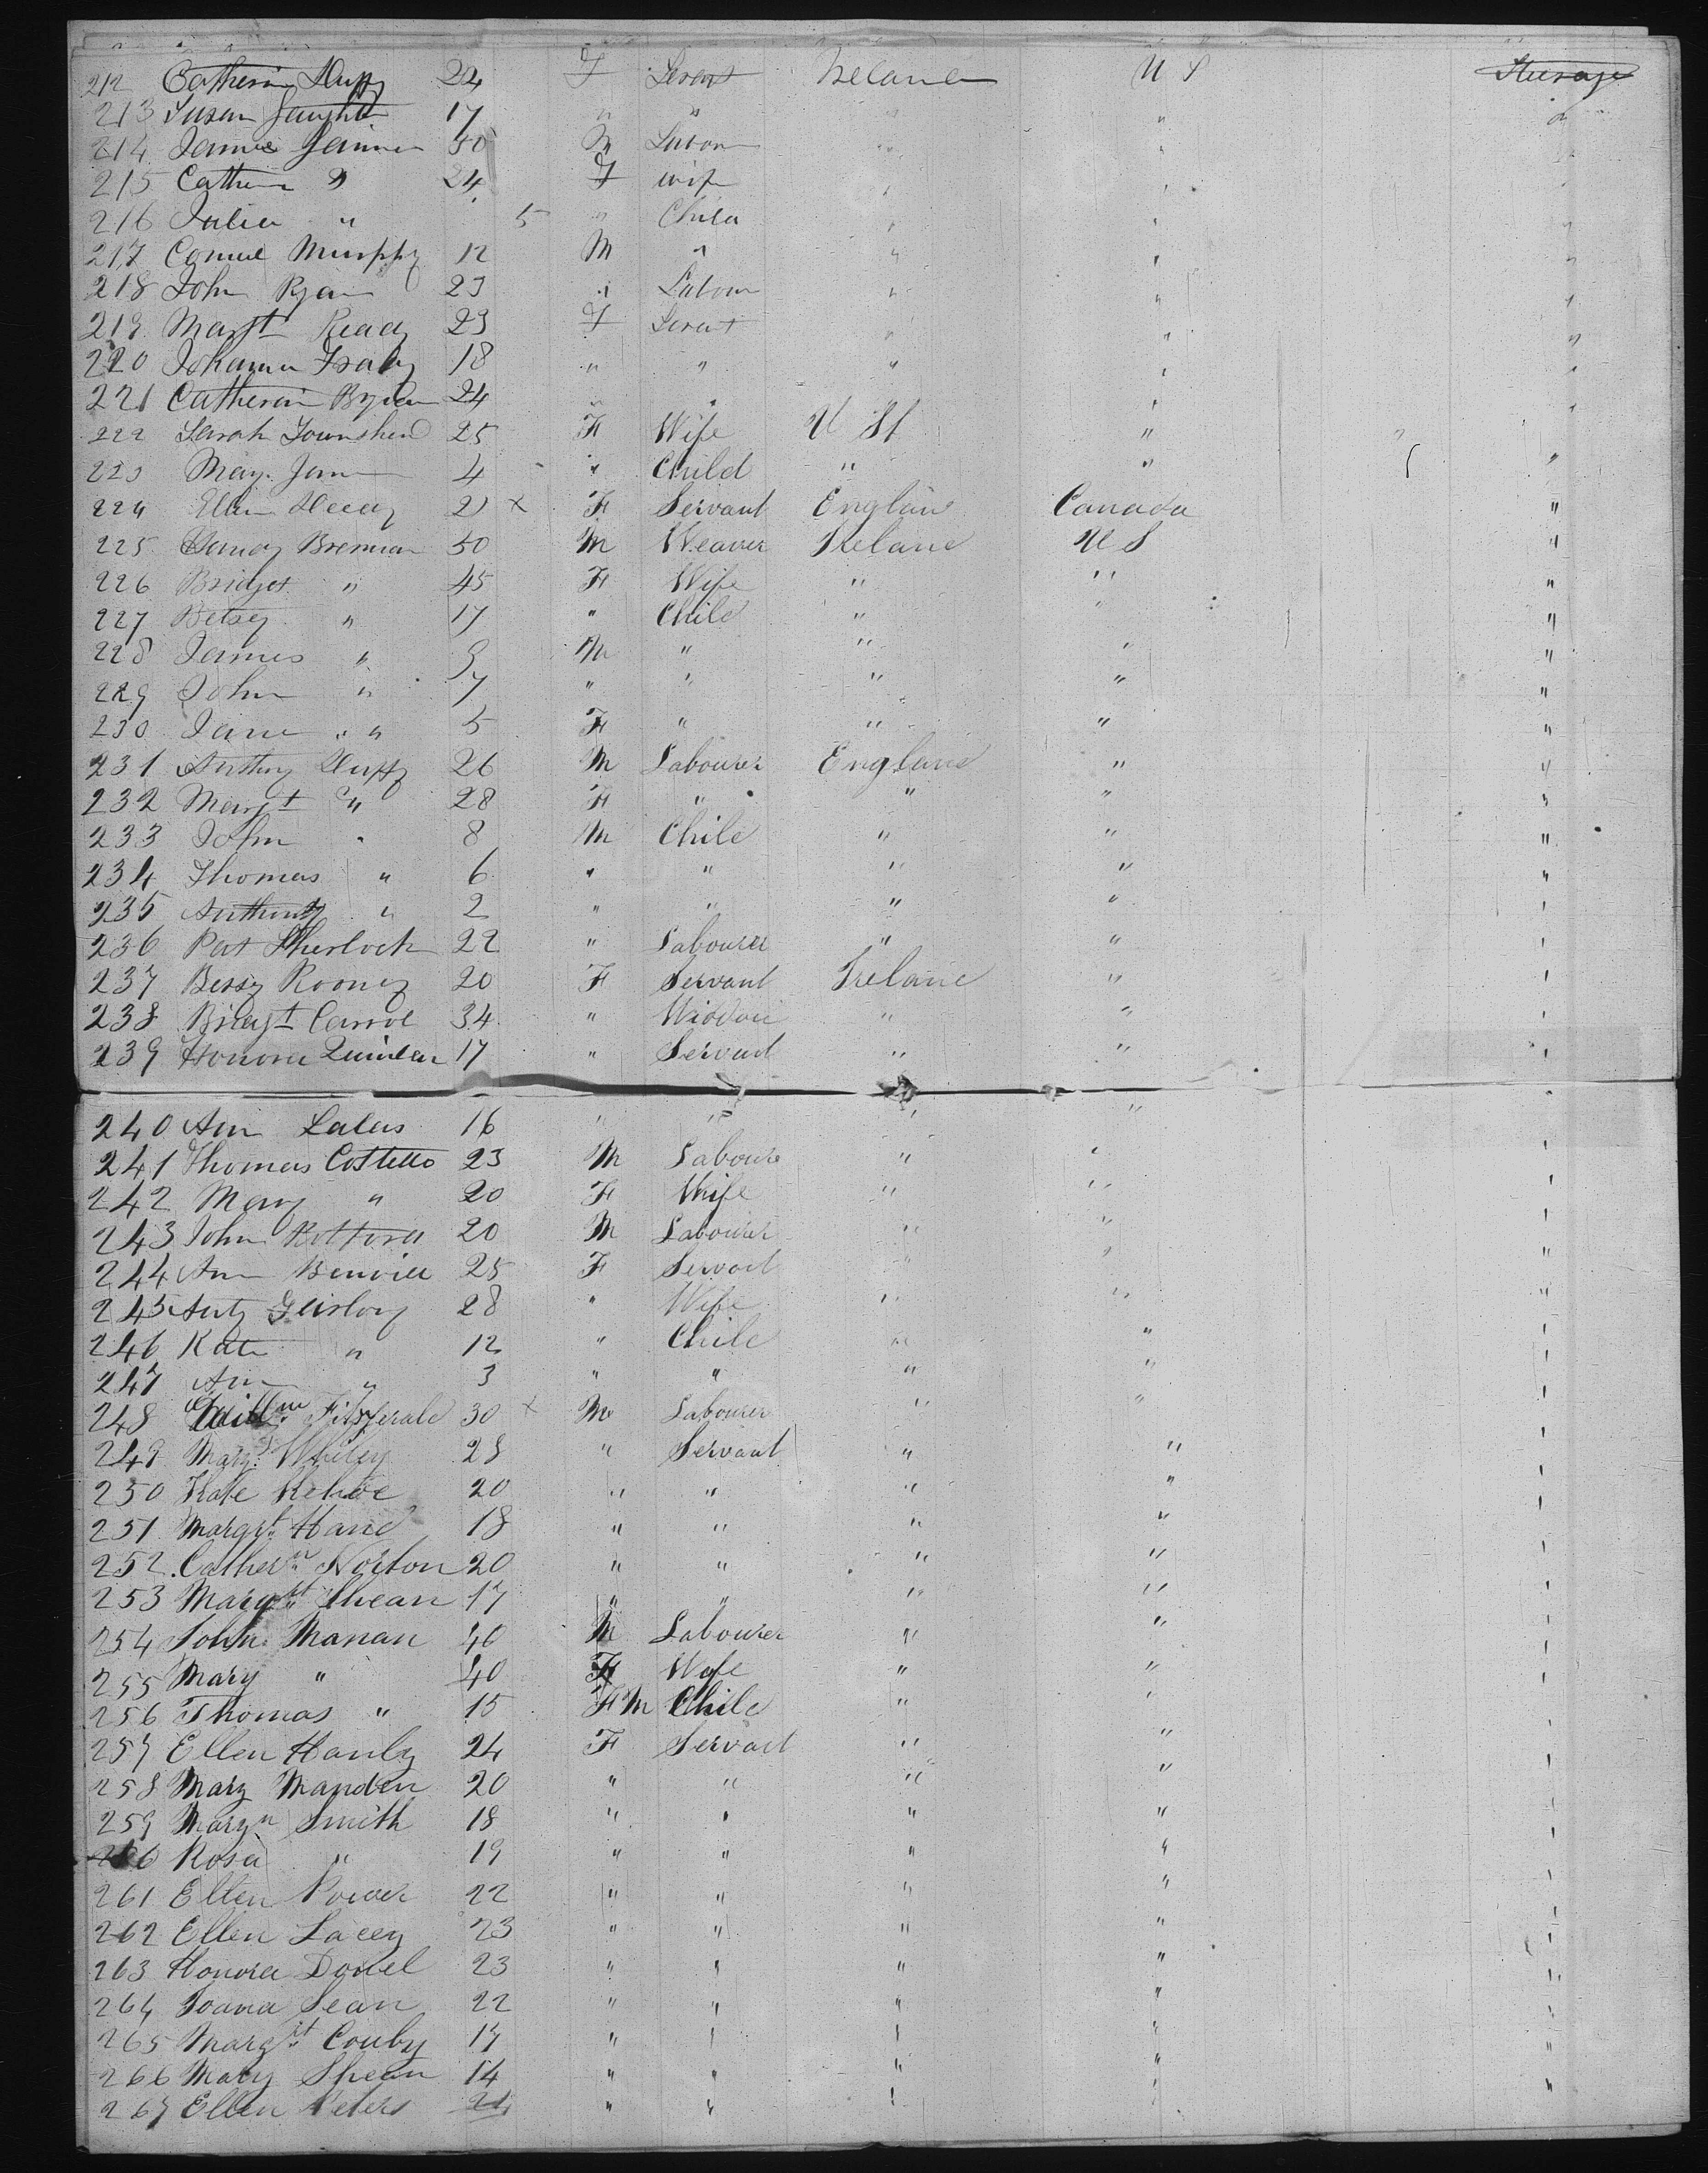 212 Catherin Duffy 22 F Servt Ireland U S Steerage
213 Susan 17 " " " " "
214 James 50 M Labour " " "
215 Cathern " 24 F wife " " "
216 Julia " 5 " Child " " "
217 Murphy 12 M " " " "
218 John Ryan 23 " Labour " " "
219 Margt Ready 23 F Servt " " "
220 Johanna 18 " " " " "
221 Catherin 24 " " " " "
222 Sarah Townshend 25 F Wife U St " " "
223 May Jan 4 " Child " " "
224 Ellen 21 x F Servant England Canada "
225 Brennan 50 M Weaver Ireland U S "
226 Bridget " 45 F Wife " " "
227 Betsey " 17 " Child " " "
228 James " 9 M " " " "
229 John " 7 " " " " "
230 Jane " " 5 F " " " "
231 Anthny Duffy 26 M Labourer England " "
232 Margt " 28 F " " " "
233 John " 8 M Child " " "
234 Thomas " 6 " " " " "
235 Anthony " 2 " " " " "
236 Pat Sherlock 22 " Labourer " " "
237 Bessy Rooney 20 F Servant Ireland " "
238 Bridgt Carrol 34 " Widow " " "
239 Honora Quinlan 17 " Servant " " "
240 Ann Lalers 16 " " " " "
241 Thomas Costello 23 M Labourer " " "
242 Mary " 20 F Wife " " "
243 John 20 M Labourer " " "
244 Ann 25 F Servant " " "
245 28 " Wife " " "
246 Kate " 12 " Child " " "
247 Ann " 3 " " " " "
248 Fitzgerald 30 x M Labourer " " "
249 Mary Whiley 28 " Servant " " "
250 Kate Kehoe 20 " " " " "
251 Margrt Hand 18 " " " " "
252 Cathern Norton 20 " " " " "
253 Margrt Shean 17 " " " " "
254 John Manan 40 M Labourer " " "
255 Mary " 40 F Wife " " "
256 Thomas " 15 F M Child " " "
257 Ellen Hanly 24 F Servant " " "
258 Mary Manden 20 " " " " "
259 Mary n Smith 18 " " " " "
260 Rosa " 19 " " " " "
261 Ellen Power 22 " " " " "
262 Ellen Lacey 23 " " " " "
263 Honora Dowel 23 " " " " "
264 Joana Sean 22 " " " " "
265 Margrt Conby 17 " " " " "
266 Mary Shean 14 " " " " "
267 Ellen Peters 21 " " " " "